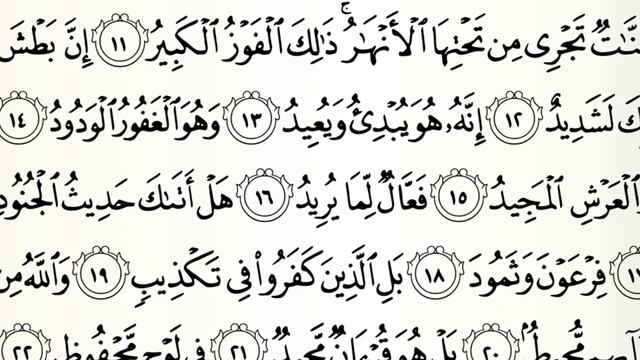 نَّٰتٌ تَجْرِى مِن تَحْتِهَا ٱلْأَنْهَٰرُ ۚ ذَٰلِكَ ٱلْفَوْزُ ٱلْكَبِيرُ ١١ إِنَّ بَطْشَ
كَ لَشَدِيدٌ ١٢ إِنَّهُۥ هُوَ يُبْدِئُ وَيُعِيدُ ١٣ وَهُوَ ٱلْغَفُورُ ٱلْوَدُودُ ١٤
ٱلْعَرْشِ ٱلْمَجِيدُ ١٥ فَعَّالٌ لِّمَا يُرِيدُ ١٦ هَلْ أَتَىٰكَ حَدِيثُ ٱلْجُنُودِ
١٧ فِرْعَوْنَ وَثَمُودَ ١٨ بَلِ ٱلَّذِينَ كَفَرُوا۟ فِى تَكْذِيبٍ ١٩ وَٱللَّهُ مِن
مُّحِيطٌۢ ٢٠ بَلْ هُوَ قُرْءَانٌ مَّجِيدٌ ٢١ فِى لَوْحٍ مَّحْفُوظٍۭ ٢٢